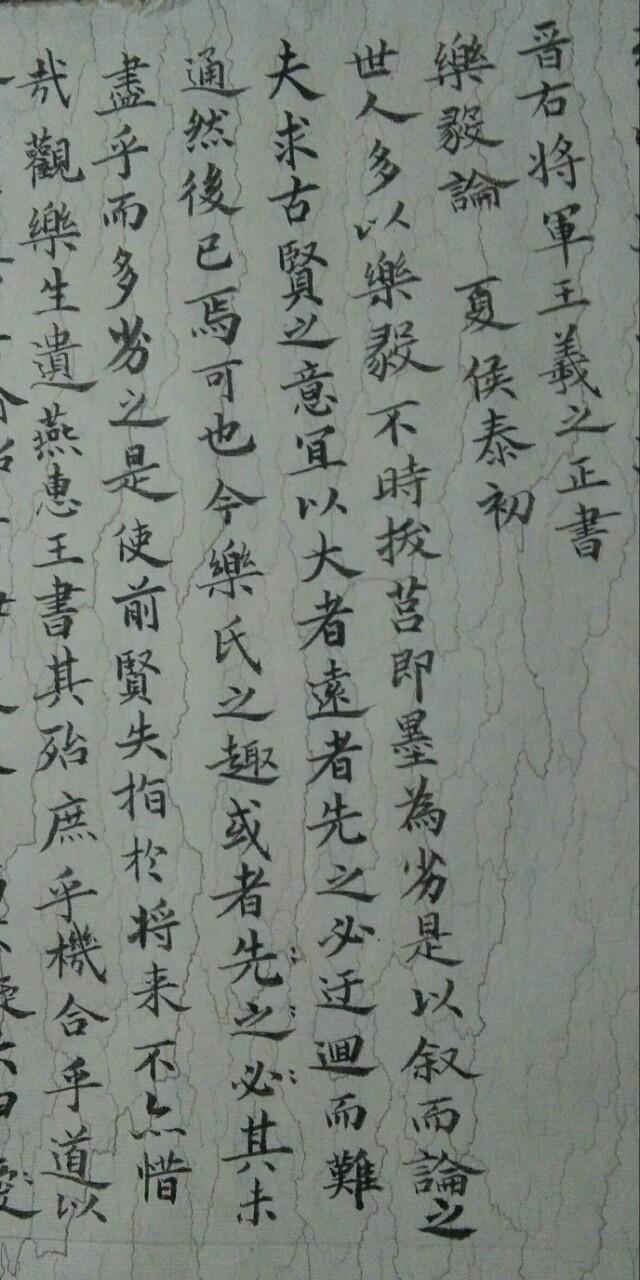 晋右将軍王羲之正書
樂毅論 夏侯泰初
世人多以樂毅不時拔莒即墨為劣是以叙而論之
夫求古賢之意宜以大者遠者先之必迂迴而難
通然後已焉可也今樂氏之趣或者先之必其未
盡乎而多劣之是使前賢失指於将来不亦惜
哉觀樂生遺燕惠王書其殆庶乎機合乎道以